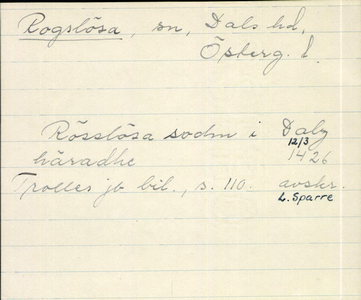 Rogslösa, sn, Dals hd,
Österg. l.
Rösslösa sodn i Daly
häradhe 12/3 1426
Trolles jb bil., s. 110. avskr.
L. Sparre